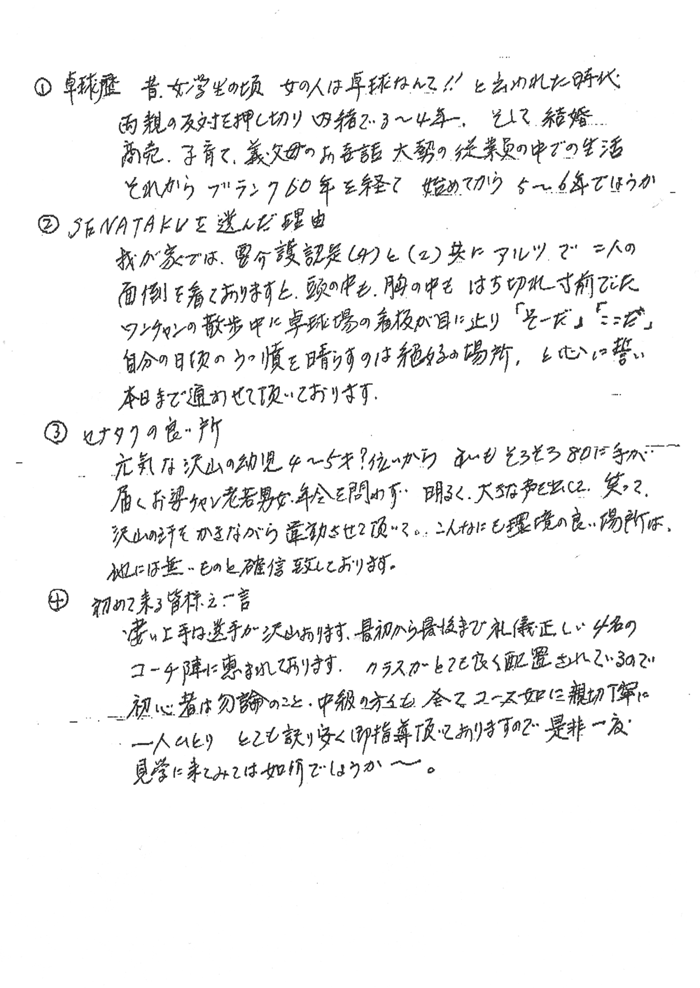 ① 卓球歴 昔、女学生の頃 女の人は卓球なんて!! と云われた時代
両親の反対を押し切り 内緒で3〜4年、そして 結婚
商売、子育て、義父母のお世話 大勢の従業員の中での生活
それから ブランク60年を経て 始めてから 5〜6年でしょうか
② SENATAKUを選んだ理由
我が家では、要介護認定(4)と(2)共に アルツ で 二人の
面倒を看ておりますと、頭の中も、胸の中も はち切れ寸前でした
ワンチャンの散歩中に卓球場の看板が目に止り 「そーだ」「ここだ」
自分の日頃のうっ憤を晴らすのは絶好の場所、と心に誓い
本日まで通わせて頂いております。
③ セナタクの良い所
元気な沢山の幼児4〜5才?位いから 私もそろそろ80に手が
届くお婆チャン老若男女、年令を問わず 明るく、大きな声を出して、笑って、
沢山の汗をかきながら運動させて頂いて。こんなにも環境の良い場所は、
他には無いものと確信致しております。
④ 初めて来る皆様え一言
凄い上手は選手が沢山おります、最初から最後まで礼儀正しい4名の
コーチ陣に恵まれております。クラスがとても良く配置されているので
初心者は勿論のこと、中級の方々も 全て コース如に親切丁寧に
一人ひとり とても判り安く即指導頂いておりますので 是非一度
見学に来てみては如何でしょうか〜。